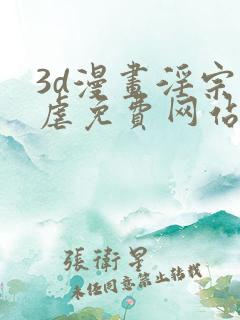 3d漫畫淫宗
虐免費网佔
張衛星
未经同意禁止转载